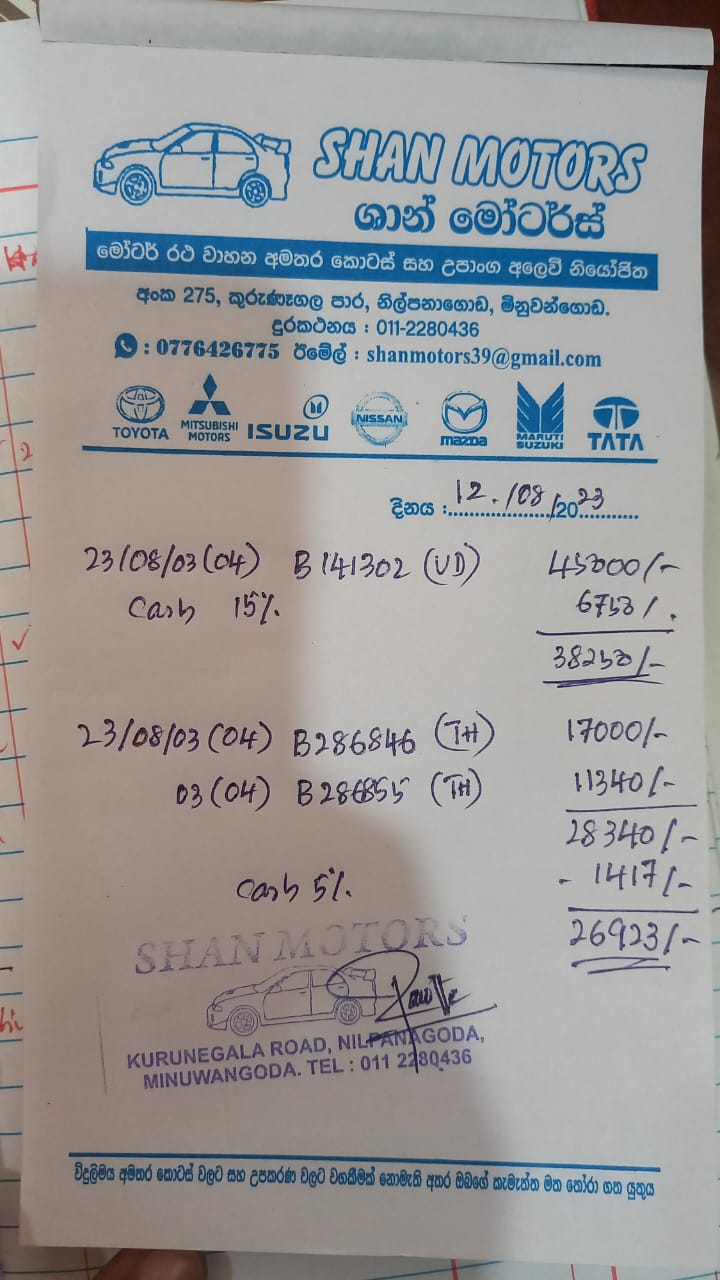 SHAN MOTORS
ශාන් මෝටර්ස්
මෝටර් රථ වාහන අමතර කොටස් සහ උපාංග අලෙවි නියෝජිත
අංක 275, කුරුණෑගල පාර, නිල්පනාගොඩ, මිනුවන්ගොඩ.
දුරකථනය : 011-2280436
: 0776426775 ඊමේල් : shanmotors39@gmail.com
TOYOTA MITSUBISHI MOTORS ISUZU NISSAN mazda MARUTI SUZUKI TATA
දිනය : 12./08/2023
23/08/03(04) B141302 (UD) 45000/-
Cash 15% 6750/.
38250/-
23/08/03(04) B286846 (TH) 17000/-
03(04) B286855 (TH) 11340/-
28340/-
Cash 5% - 1417/-
26923/-
SHAN MOTORS
KURUNEGALA ROAD, NILPANAGODA,
MINUWANGODA. TEL : 011 2280436
විදුලිමය අමතර කොටස් වලට සහ උපකරණ වලට වගකීමක් නොමැති අතර ඔබගේ කැමැත්ත මත තෝරා ගත යුතුය